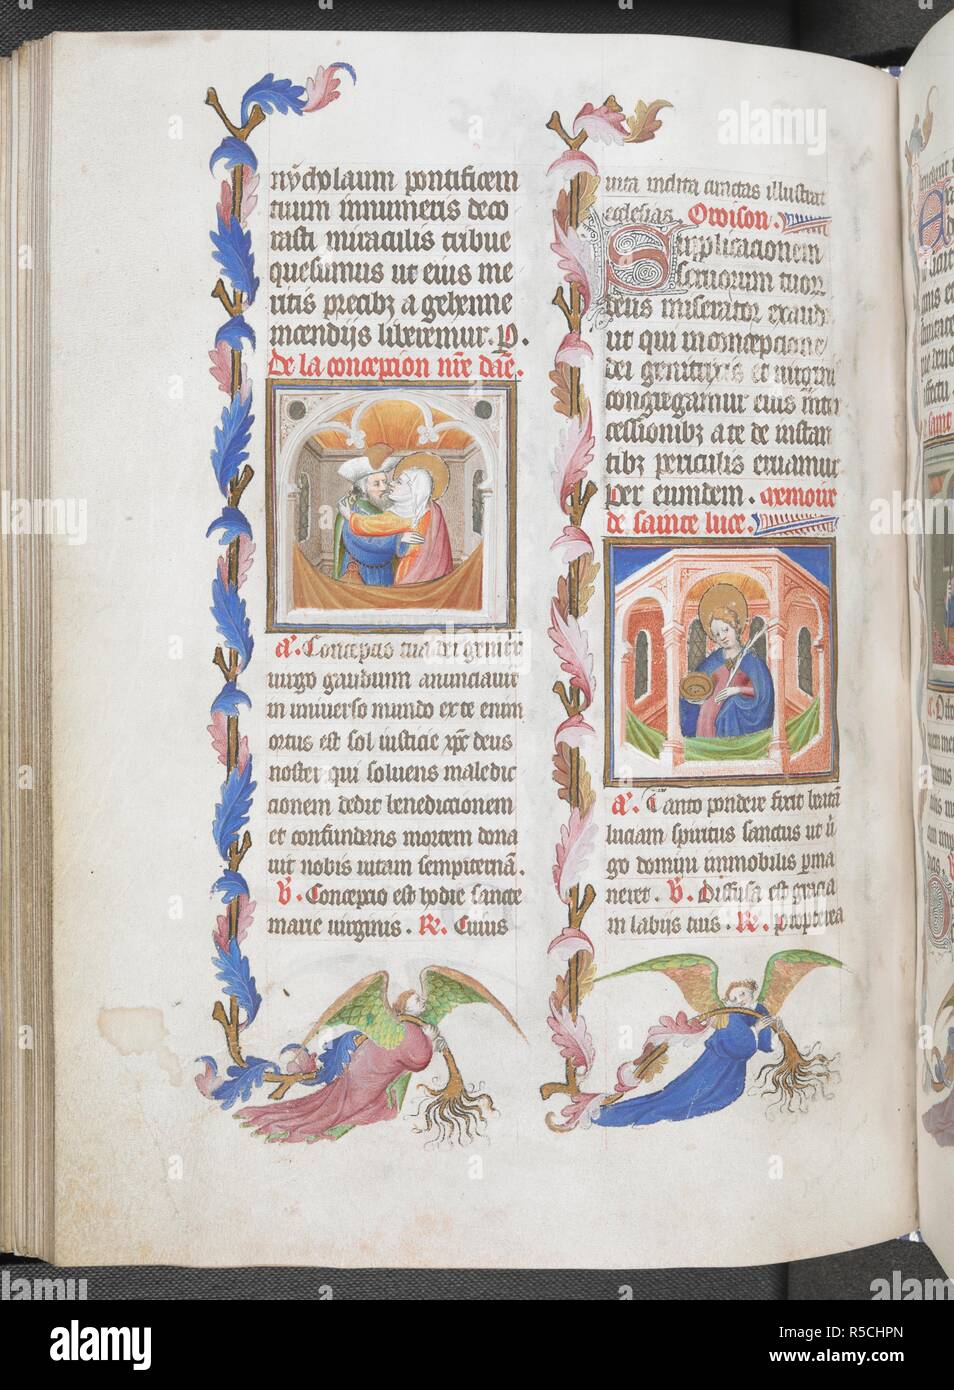 nycholaum pontificem
tuum innumeris deco
rasti miraculis tribue
quesumus ut eius me
ritis precibz a gehenne
incendijs liberemur. P.
De la conception nre dame.
A. Conceptio tua dei genitrix
virgo gaudium anunciavit
in universo mundo ex te enim
ortus est sol iusticie xpc deus
noster qui solvens maledic
cionem dedit benedictionem
et confundans mortem dona
vit nobis vitam sempiternã.
V. Conceptio est hodie sancte
marie virginis. R. Cuius
vita inclita cunctas illustrat
ecclesias. Oroison.
Supplicationem
servorum tuor
deus miserator exaudi
ut qui in concepcione
dei genitricis et virginis
congregamur eius inter
cessionibz a te de instan
tibz periculis eruamur
per eumdem. Memoire
de sainte luce.
A. Tanto pondere fixit beatã
luciam spiritus sanctus ut vi
go domini immobilis perma
neret. V. Diffusa est gracia
in labijs tuis. R. propterea
alamy
Image ID: R5CHPN
www.alamy.com